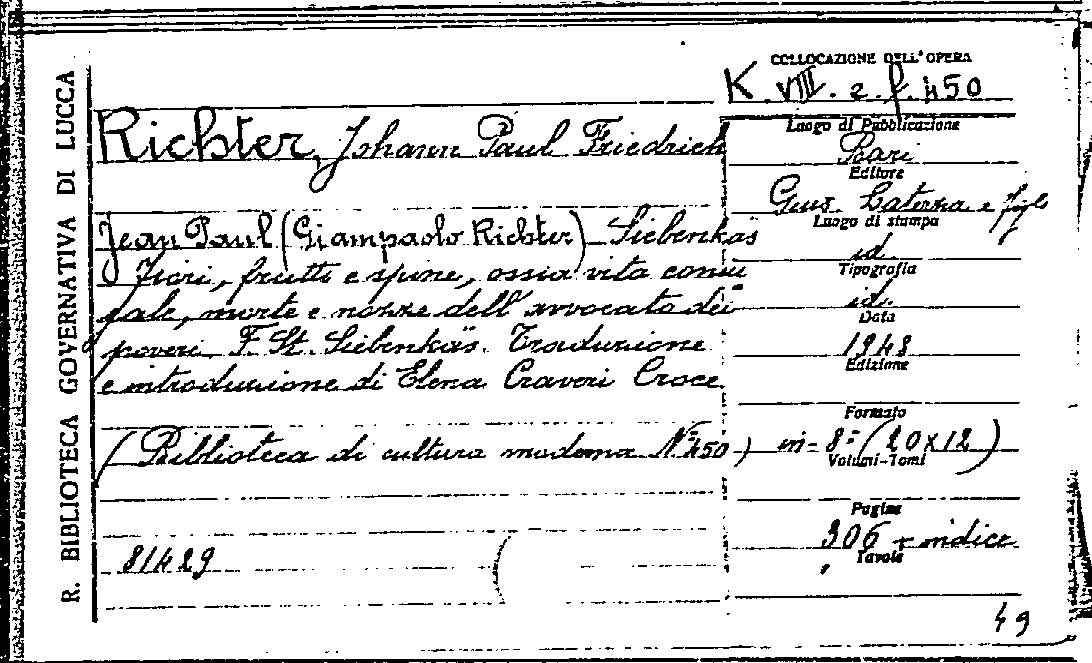 R. BIBLIOTECA GOVERNATIVA DI LUCCA
COLLOCAZIONE DELL'OPERA
K VIII. 2. f. 450
Richter, Johann Paul Friedrich
Jean Paul (Giampaolo Richter) Siebenkäs
Fiori, frutti e spine, ossia vita coniu
gale, morte e nozze dell'avvocato dei
poveri F. St. Siebenkäs. Traduzione
e introduzione di Elena Craveri Croce
(Biblioteca di cultura moderna N° 450)
81429
Luogo di Pubblicazione
Bari
Editore
Gius. Laterza e figli
Luogo di stampa
id.
Tipografia
id.
Data
1948
Edizione
Formato
in-8° (20x12)
Volumi-Tomi
Pagine
306 + indice
Tavole
49